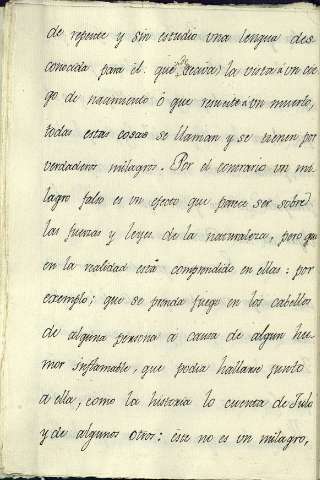 de repente y sin estudio vna lengua des
conocida para èl: que reciva la vista â vn cie
go de nacimiento ò que resucite â vn muerto,
todas estas cosas se llaman y se tienen por
verdaderos milagros. Por el contrario vn mi
lagro falso es un efecto que parece ser sobre
las fuerzas y leyes de la naturaleza, pero que
en la realidad està comprendido en ellas: por
exemplo; que se prenda fuego en los cabellos
de alguna persona a causa de algun hu
mor inflamable, que podia hallarse junto
a ella, como la historia lo cuenta de Julo
y de algunos otros: este no es un milagro,